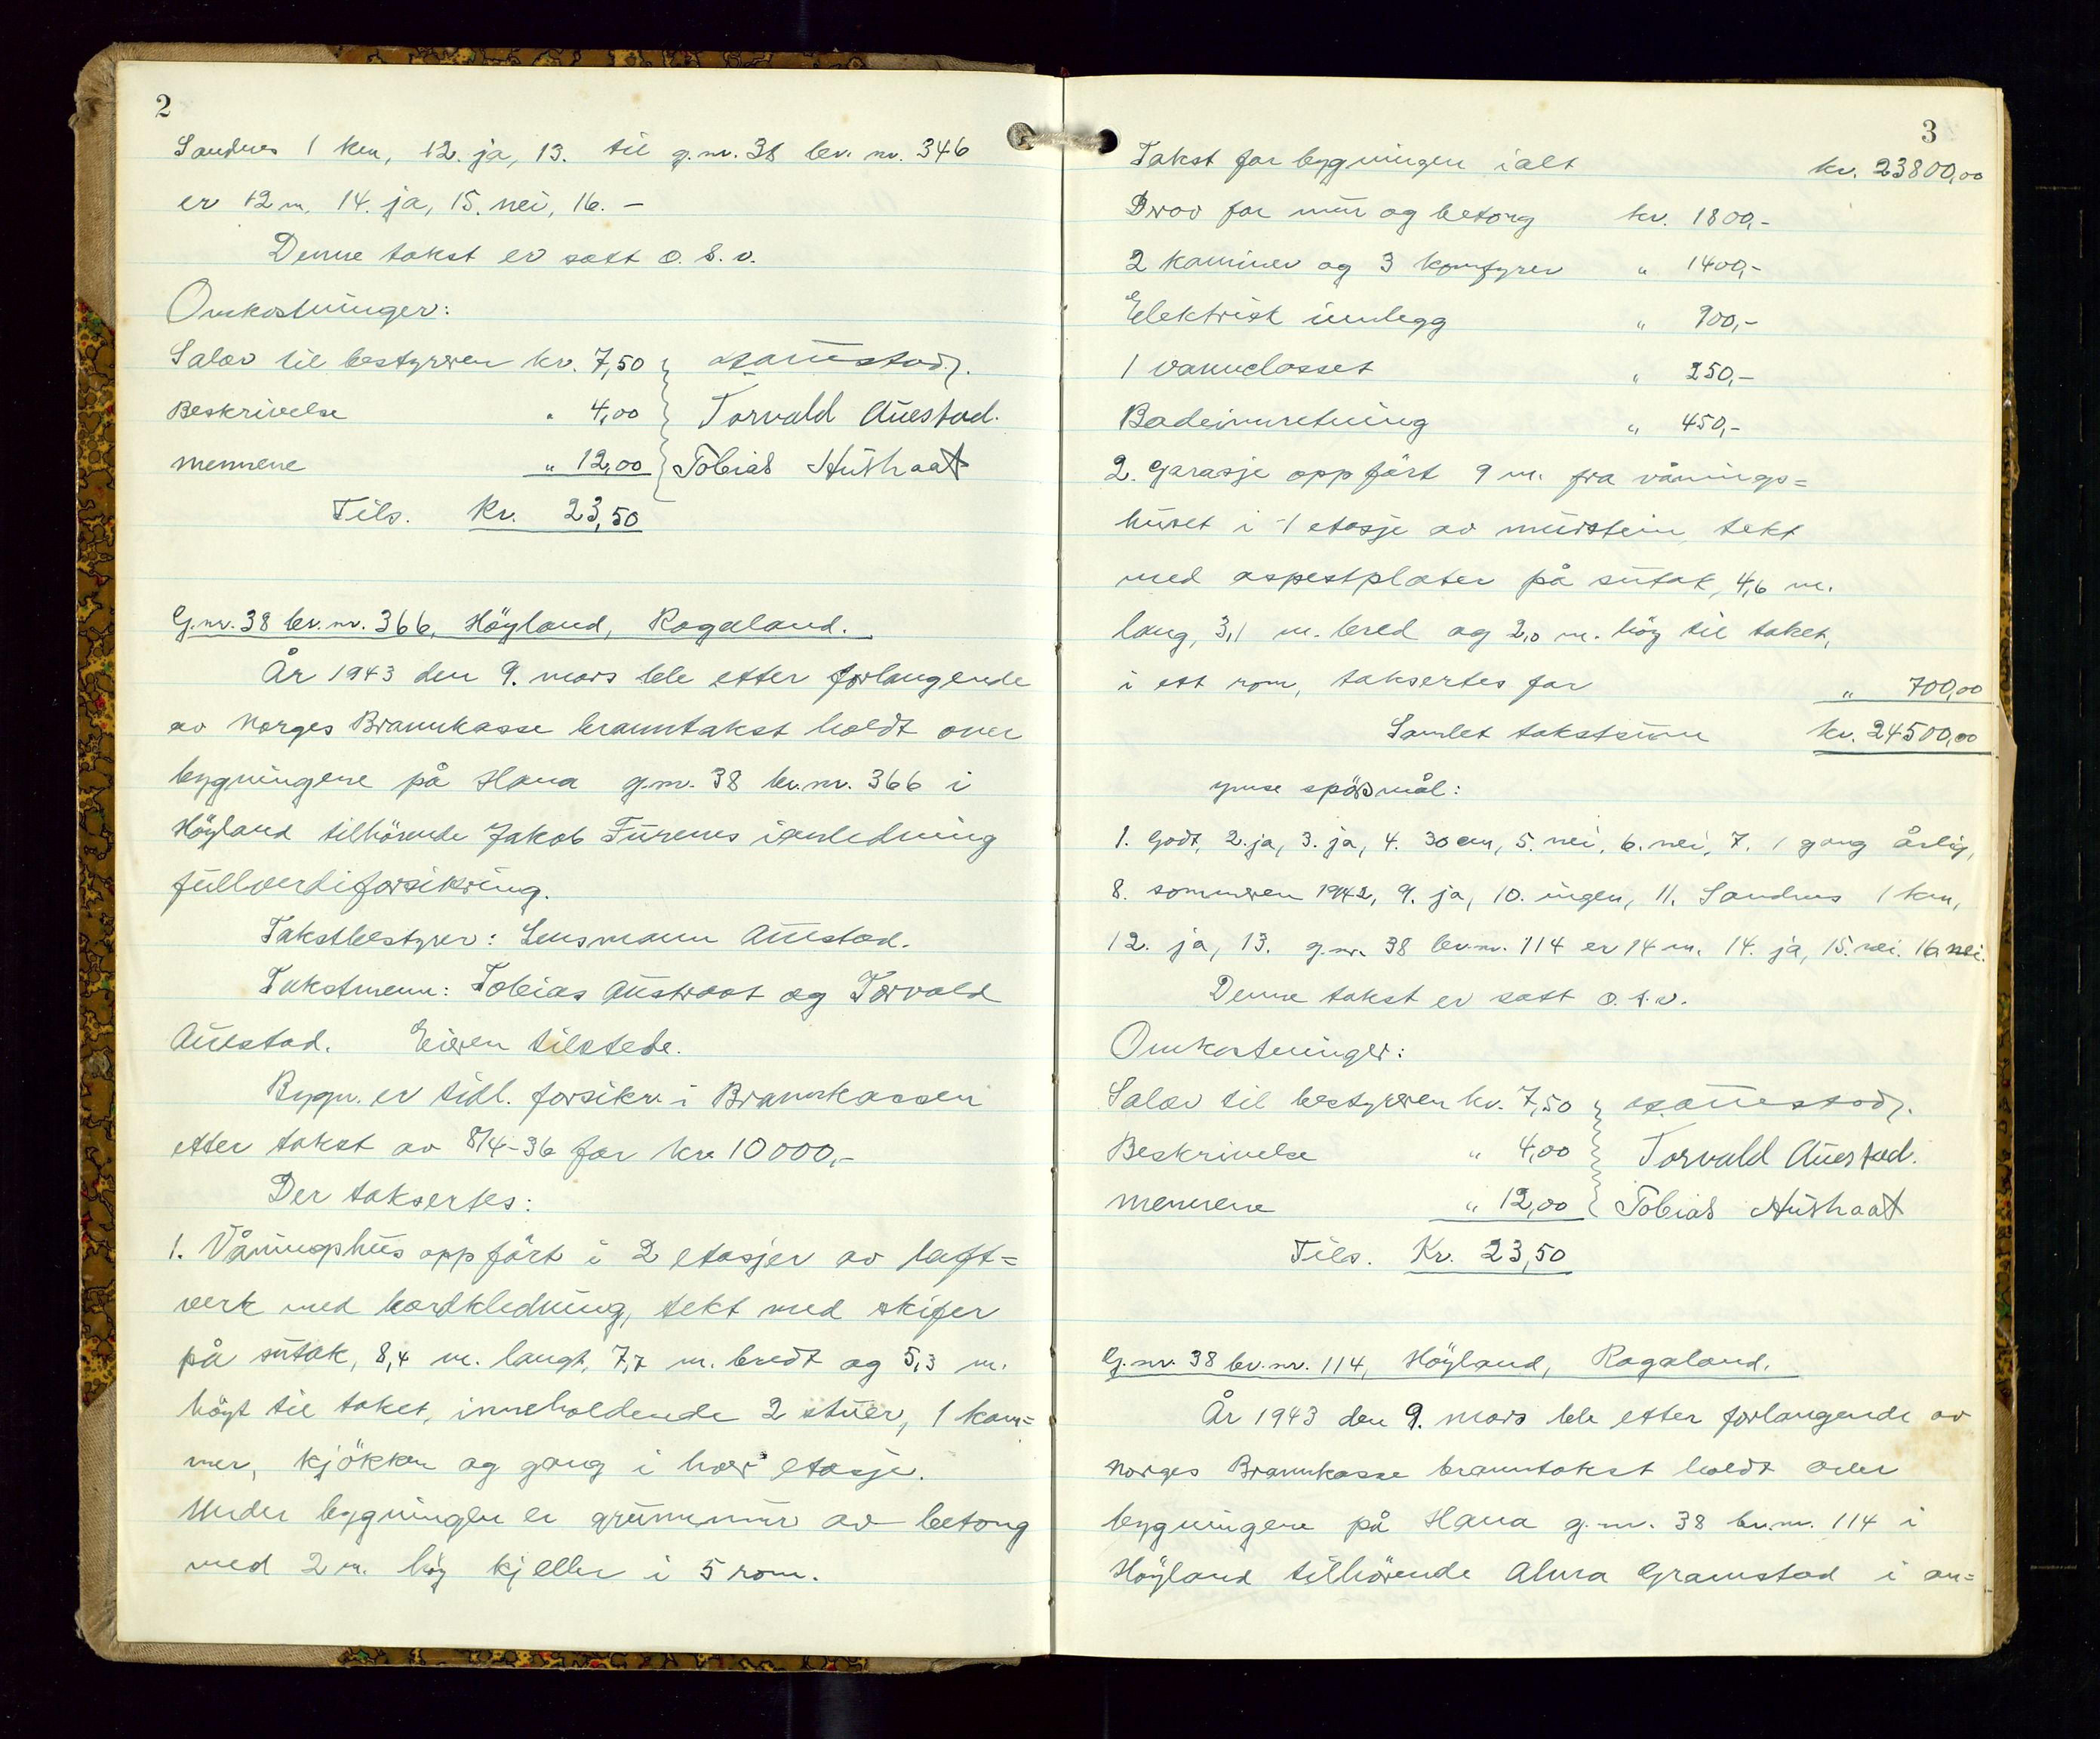 2
Sandnes 1 km, 12. ja, 13. til g.nr. 38 br. nr. 346
er 12 m, 14. ja, 15. nei, 16. –
Denne takst er satt o. s. v.
Omkostninger:
Salær til bestyreren kr. 7,50
Beskrivelse " 4,00 Torvald Auestad.
mennene " 12,00 Tobias Austraat
Tils. Kr. 23,50
G.nr. 38 br.nr. 366, Höyland, Rogaland.
År 1943 den 9. mars ble etter forlangende
av Norges Brannkasse branntakst holdt over
bygningene på Hana g.nr. 38 br.nr. 366 i
Höyland tilhörende Jakob Furenes i anledning
fullverdiforsikring.
Takstbestyrer: Lensmann Auestad.
Takstmenn: Tobias Austraat og Torvald
Auestad. Eieren tilstede.
Bygn. er tidl. forsikr. i Brannkassen
etter takst av 8/4-36 for kr. 10000,-
Der takseres:
1. Våningshus oppfört i 2 etasjer av laft=
verk med bordkledning, tekt med skifer
på sutak, 8,4 m. langt, 7,7 m. bredt og 5,3 m.
höyt til taket, inneholdende 2 stuer, 1 kam=
mer, kjökken og gang i hver etasje.
Under bygningen er grunnmur av betong
med 2 m. höy kjeller i 5 rom.
3
Takst for bygningen ialt kr. 23800,00
Herav for mur og betong kr. 1800,-
2 kaminer og 3 komfyrer " 1400,-
Elektrisk innlegg " 900,-
1 vannclosset " 250,-
Badeinnretning " 450,-
2. Garasje oppfört 9 m. fra vånings=
huset i 1 etasje av murstein, tekt
med aspestplater på sutak, 4,6 m.
lang, 3,1 m. bred og 2,0 m. höy til taket,
i ett rom, taksertes for " 700,00
Samlet takstsum kr. 24500,00
ymse spörsmål:
1. Godt, 2. ja, 3. ja, 4. 30 cm, 5. nei, 6. nei, 7. 1 gang årlig,
8. sommeren 1942, 9. ja, 10. ingen, 11. Sandnes 1 km,
12. ja, 13. g.nr. 38 br.nr. 114 er 14 m. 14. ja, 15. nei. 16 nei.
Denne takst er satt o. s. v.
Omkostninger:
Salær til bestyreren kr. 7,50
Beskrivelse " 4,00 Torvald Auestad.
mennene " 12,00 Tobias Austraat
Tils. Kr. 23,50
G.nr. 38 br.nr. 114, Höyland, Rogaland.
År 1943 den 9. mars ble etter forlangende av
Norges Brannkasse branntakst holdt over
bygningene på Hana g.nr. 38 br.nr. 114 i
Höyland tilhörende Alma Gramstad i an=